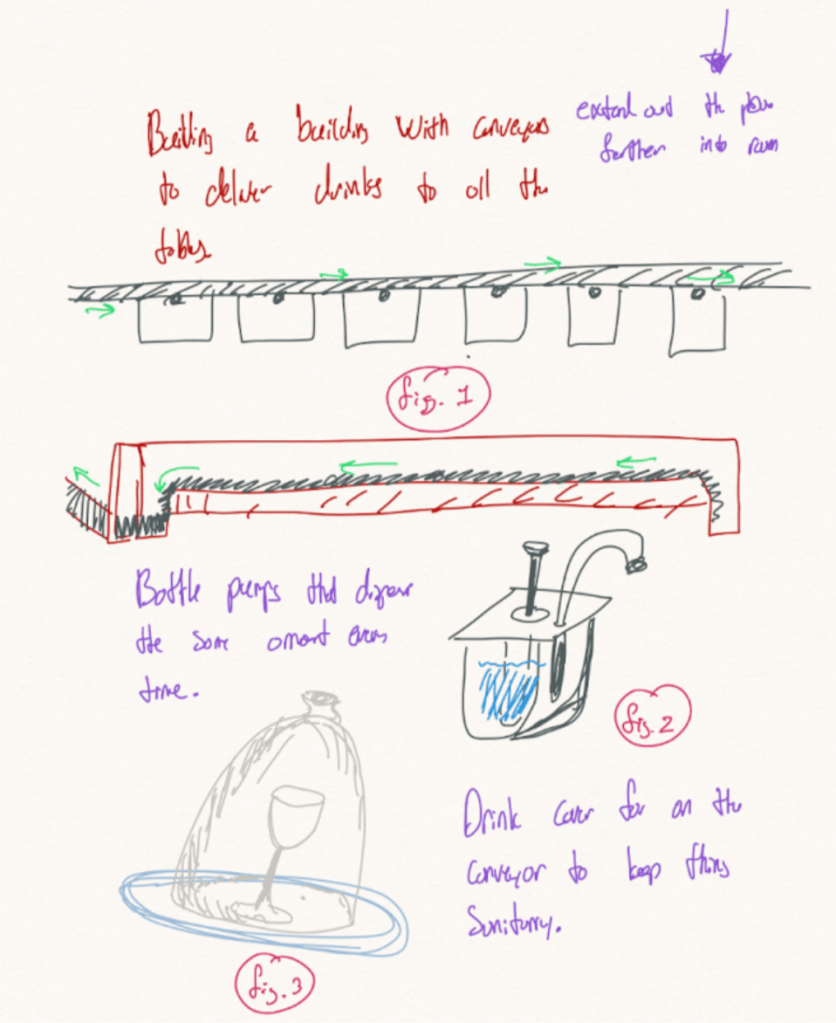 Building a building with conveyors
to deliver drinks to all the
tables
extend out the
further into room
fig. 1
Bottle pumps that dispense
the same amount every
time.
fig. 2
Drink cover for on the
conveyor to keep things
Sanitarry.
fig. 3